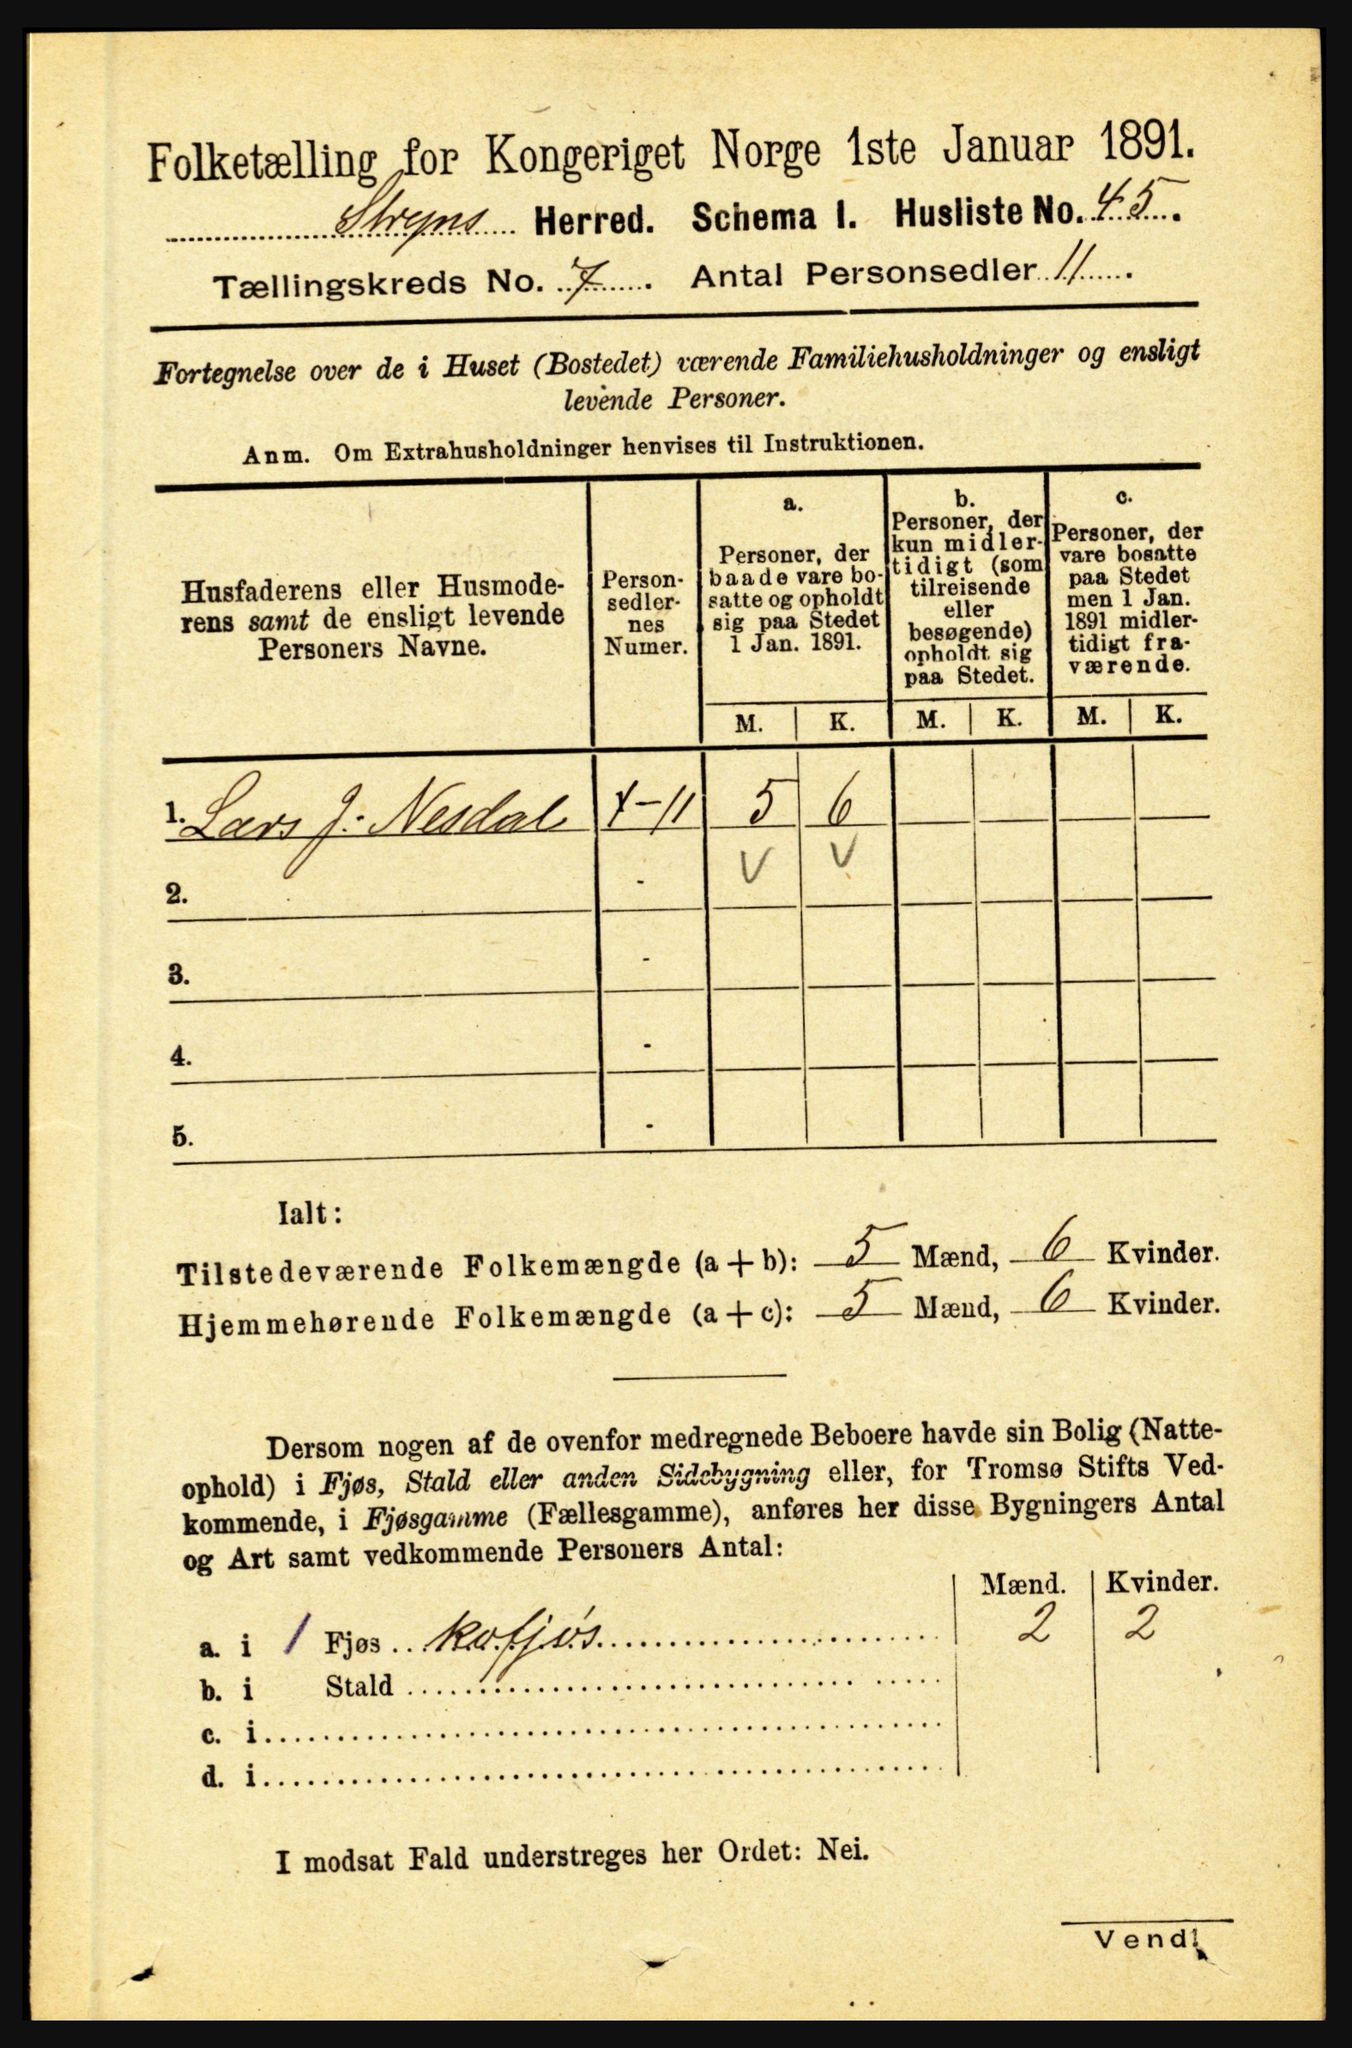 Folketælling for Kongeriget Norge 1ste Januar 1891.
Stryns Herred. Schema I. Husliste No. 45.
Tællingskreds No. 7. Antal Personsedler 11.
Fortegnelse over de i Huset (Bostedet) værende Familiehusholdninger og ensligt
levende Personer.
Anm. Om Extrahusholdninger henvises til Instruktionen.
Husfaderens eller Husmode-
rens samt de ensligt levende
Personers Navne.
Person-
sedler-
nes
Numer.
a.
Personer, der
baade vare bo-
satte og opholdt
sig paa Stedet
1 Jan. 1891.
b.
Personer, der
kun midler-
tidigt (som
tilreisende
eller
besøgende)
opholdt sig
paa Stedet.
c.
Personer, der
vare bosatte
paa Stedet
men 1 Jan.
1891 midler-
tidigt fra-
værende.
M. K. M. K. M. K.
1. Lars J. Nesdal 1-11 5 6
2. - V V
3. -
4. -
5. -
Ialt:
Tilstedeværende Folkemængde (a + b): 5 Mænd, 6 Kvinder.
Hjemmehørende Folkemængde (a + c): 5 Mænd, 6 Kvinder.
Dersom nogen af de ovenfor medregnede Beboere havde sin Bolig (Natte-
ophold) i Fjøs, Stald eller anden Sidebygning eller, for Tromsø Stifts Ved-
kommende, i Fjøsgamme (Fællesgamme), anføres her disse Bygningers Antal
og Art samt vedkommende Personers Antal:
Mænd. Kvinder.
a. i 1 Fjøs kofjøs 2 2
b. i Stald
c. i
d. i
I modsat Fald understreges her Ordet: Nei.
Vend!